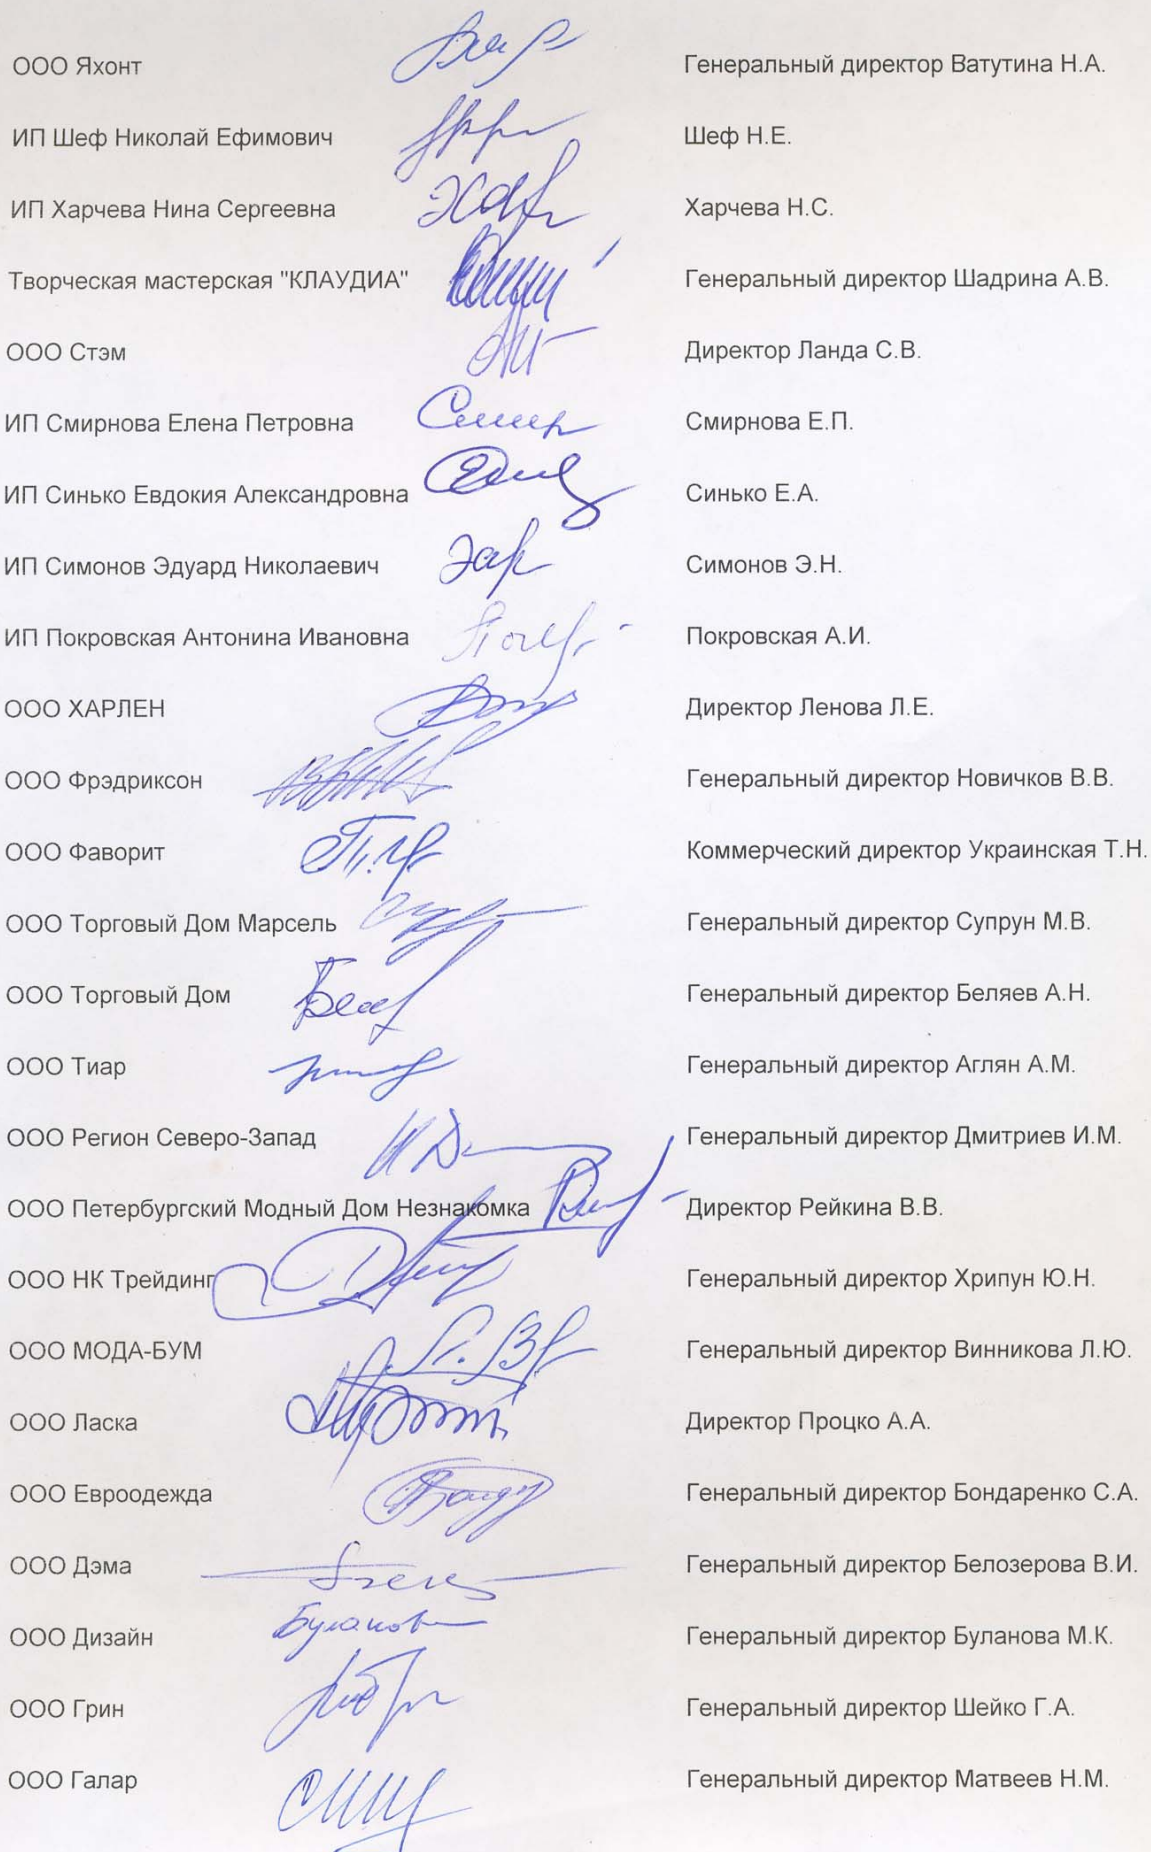 ООО Яхонт Генеральный директор Ватутина Н.А.
ИП Шеф Николай Ефимович Шеф Н.Е.
ИП Харчева Нина Сергеевна Харчева Н.С.
Творческая мастерская "КЛАУДИА" Генеральный директор Шадрина А.В.
ООО Стэм Директор Ланда С.В.
ИП Смирнова Елена Петровна Смирнова Е.П.
ИП Синько Евдокия Александровна Синько Е.А.
ИП Симонов Эдуард Николаевич Симонов Э.Н.
ИП Покровская Антонина Ивановна Покровская А.И.
ООО ХАРЛЕН Директор Ленова Л.Е.
ООО Фрэдриксон Генеральный директор Новичков В.В.
ООО Фаворит Коммерческий директор Украинская Т.Н.
ООО Торговый Дом Марсель Генеральный директор Супрун М.В.
ООО Торговый Дом Генеральный директор Беляев А.Н.
ООО Тиар Генеральный директор Аглян А.М.
ООО Регион Северо-Запад Генеральный директор Дмитриев И.М.
ООО Петербургский Модный Дом Незнакомка Директор Рейкина В.В.
ООО НК Трейдинг Генеральный директор Хрипун Ю.Н.
ООО МОДА-БУМ Генеральный директор Винникова Л.Ю.
ООО Ласка Директор Процко А.А.
ООО Евроодежда Генеральный директор Бондаренко С.А.
ООО Дэма Генеральный директор Белозерова В.И.
ООО Дизайн Генеральный директор Буланова М.К.
ООО Грин Генеральный директор Шейко Г.А.
ООО Галар Генеральный директор Матвеев Н.М.